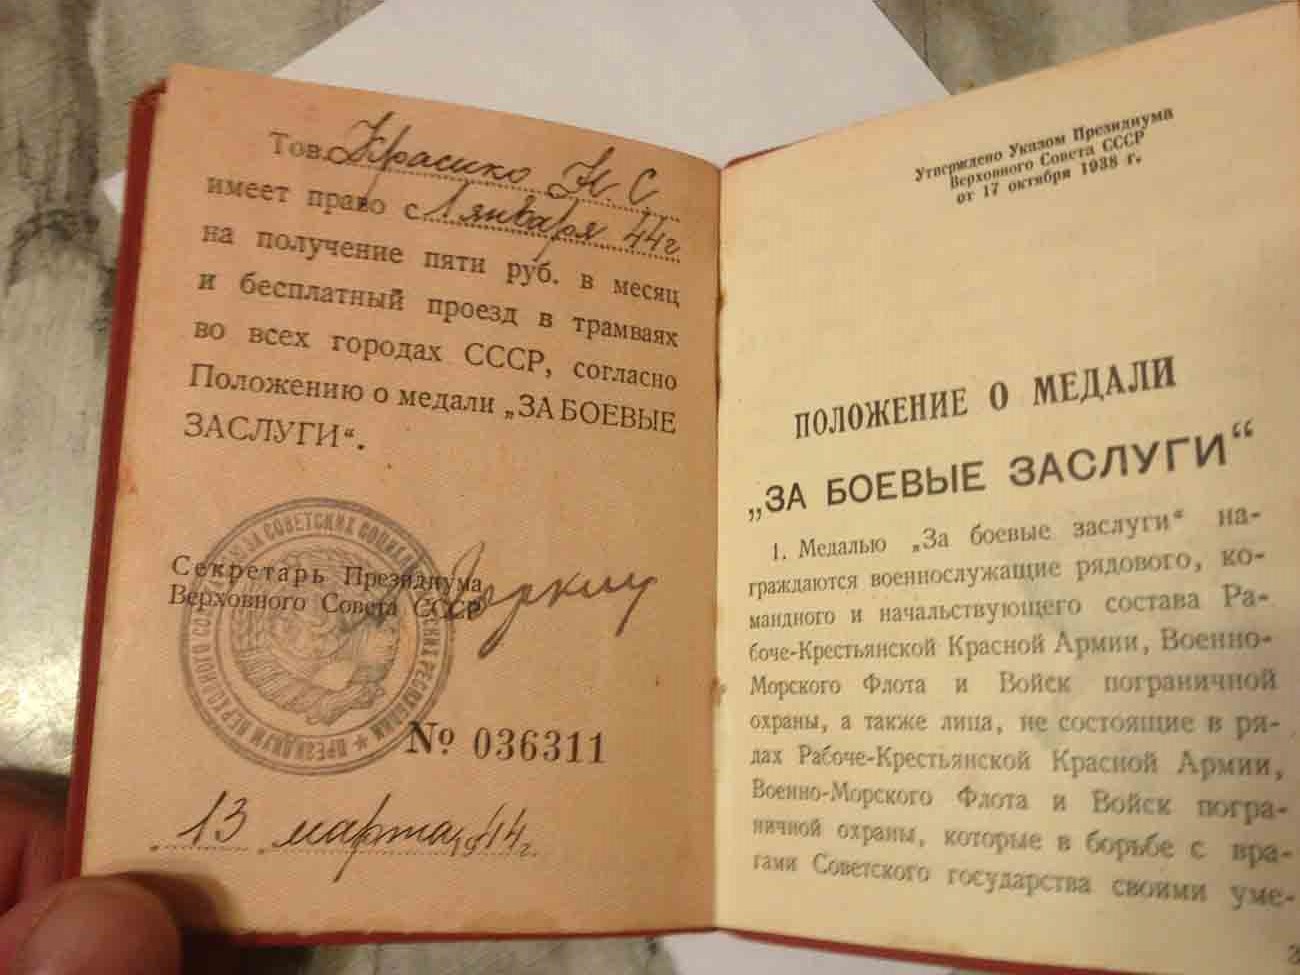 Тов. Красико Н. С.
имеет право с 1 января 44 г
на получение пяти руб. в месяц
и бесплатный проезд в трамваях
во всех городах СССР, согласно
Положению о медали „ЗА БОЕВЫЕ
ЗАСЛУГИ“.
Секретарь Президиума
Верховного Совета СССР
№ 036311
13 марта 1944 г.
Утверждено Указом Президиума
Верховного Совета СССР
от 17 октября 1938 г.
ПОЛОЖЕНИЕ О МЕДАЛИ
„ЗА БОЕВЫЕ ЗАСЛУГИ“
1. Медалью „За боевые заслуги“ на-
граждаются военнослужащие рядового, ко-
мандного и начальствующего состава Ра-
боче-Крестьянской Красной Армии, Военно-
Морского Флота и Войск пограничной
охраны, а также лица, не состоящие в ря-
дах Рабоче-Крестьянской Красной Армии,
Военно-Морского Флота и Войск погра-
ничной охраны, которые в борьбе с вра-
гами Советского государства своими уме-